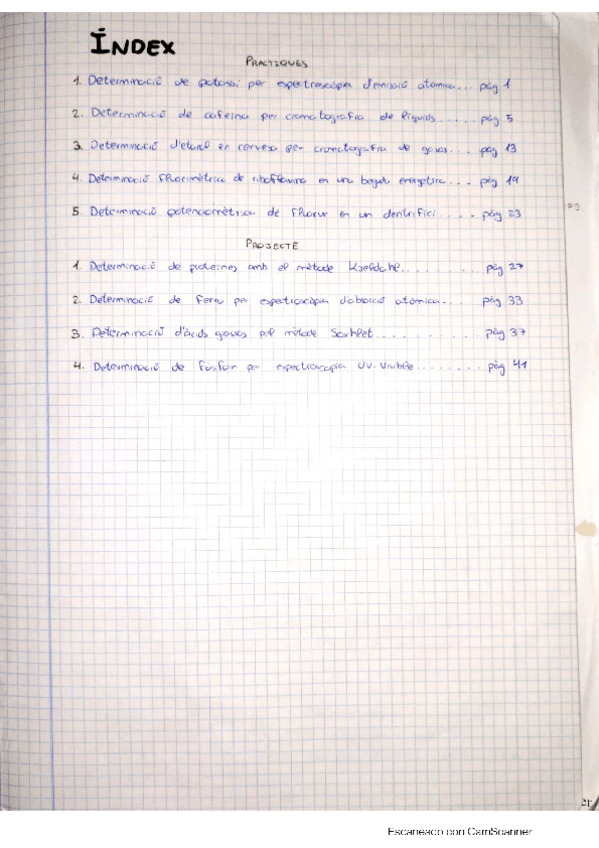 ÍNDEX
PRÀCTIQUES
1. Determinació de potassi per espectroscòpia d'emissió atòmica... pàg 1
2. Determinació de cafeïna per cromatografia de líquids..... pàg 5
3. Determinació d'etanol en cervesa per cromatografia de gasos... pàg 13
4. Determinació fluorimètrica de riboflavina en una beguda energètica... pàg 19
5. Determinació potenciomètrica de fluorur en un dentrífici.... pàg 23
PROJECTE
1. Determinació de proteïnes amb el mètode Kjeldahl......... pàg 27
2. Determinació de ferro per espectroscòpia d'absorció atòmica... pàg 33
3. Determinació d'àcids grassos pel mètode Soxhlet.......... pàg 37
4. Determinació de fòsfor per espectroscòpia UV-Visible........ pàg 41
Escaneado con CamScanner